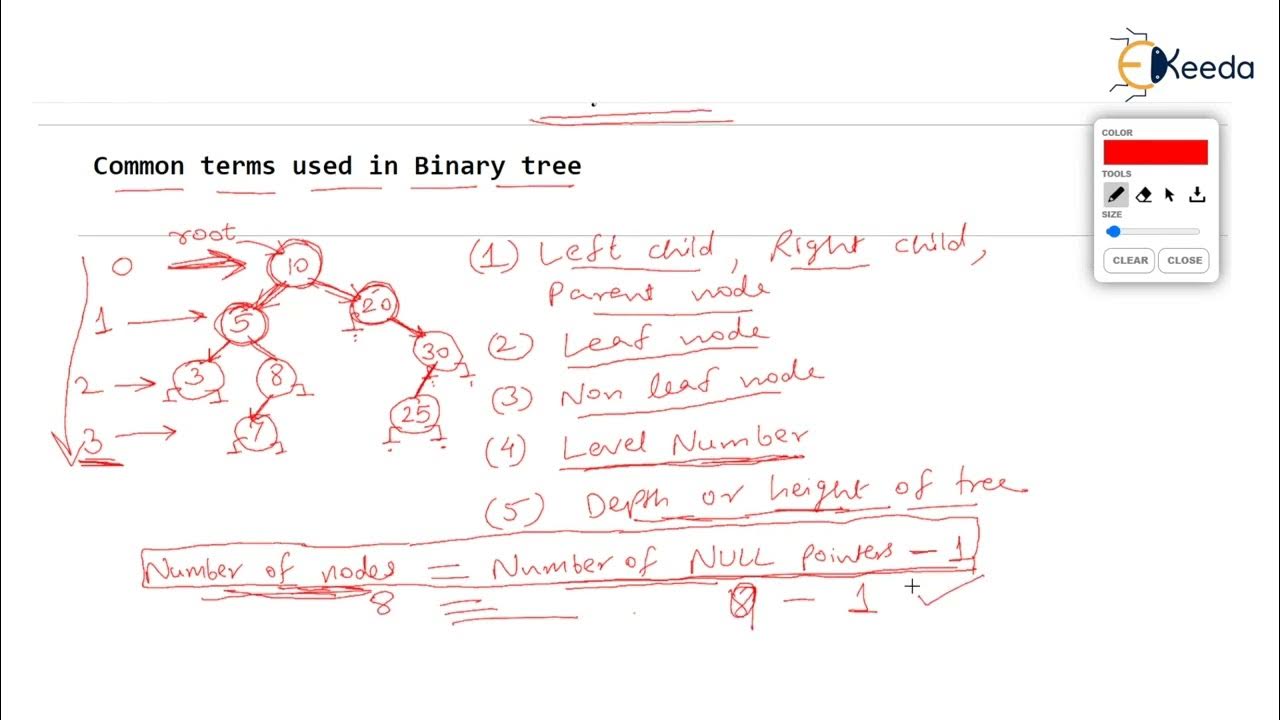 EKeeda
COLOR
TOOLS
SIZE
CLEAR CLOSE
Common terms used in Binary tree
root
0 10
1 5 20
2 3 8 30
3 7 25
(1) Left child, Right child,
Parent node
(2) Leaf node
(3) Non leaf node
(4) Level Number
(5) Depth or height of tree
Number of nodes = Number of NULL pointers - 1
8 = 9 - 1